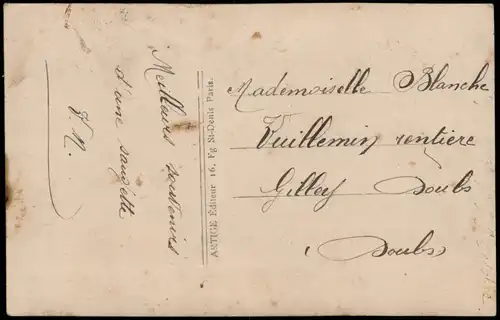 Meilleurs souvenirs
d'une
V. N.
ARTIGE Éditeur 16, Fg St-Denis Paris.
Mademoiselle Blanche
Vuillemin rentière
Gilley Doubs
Doubs